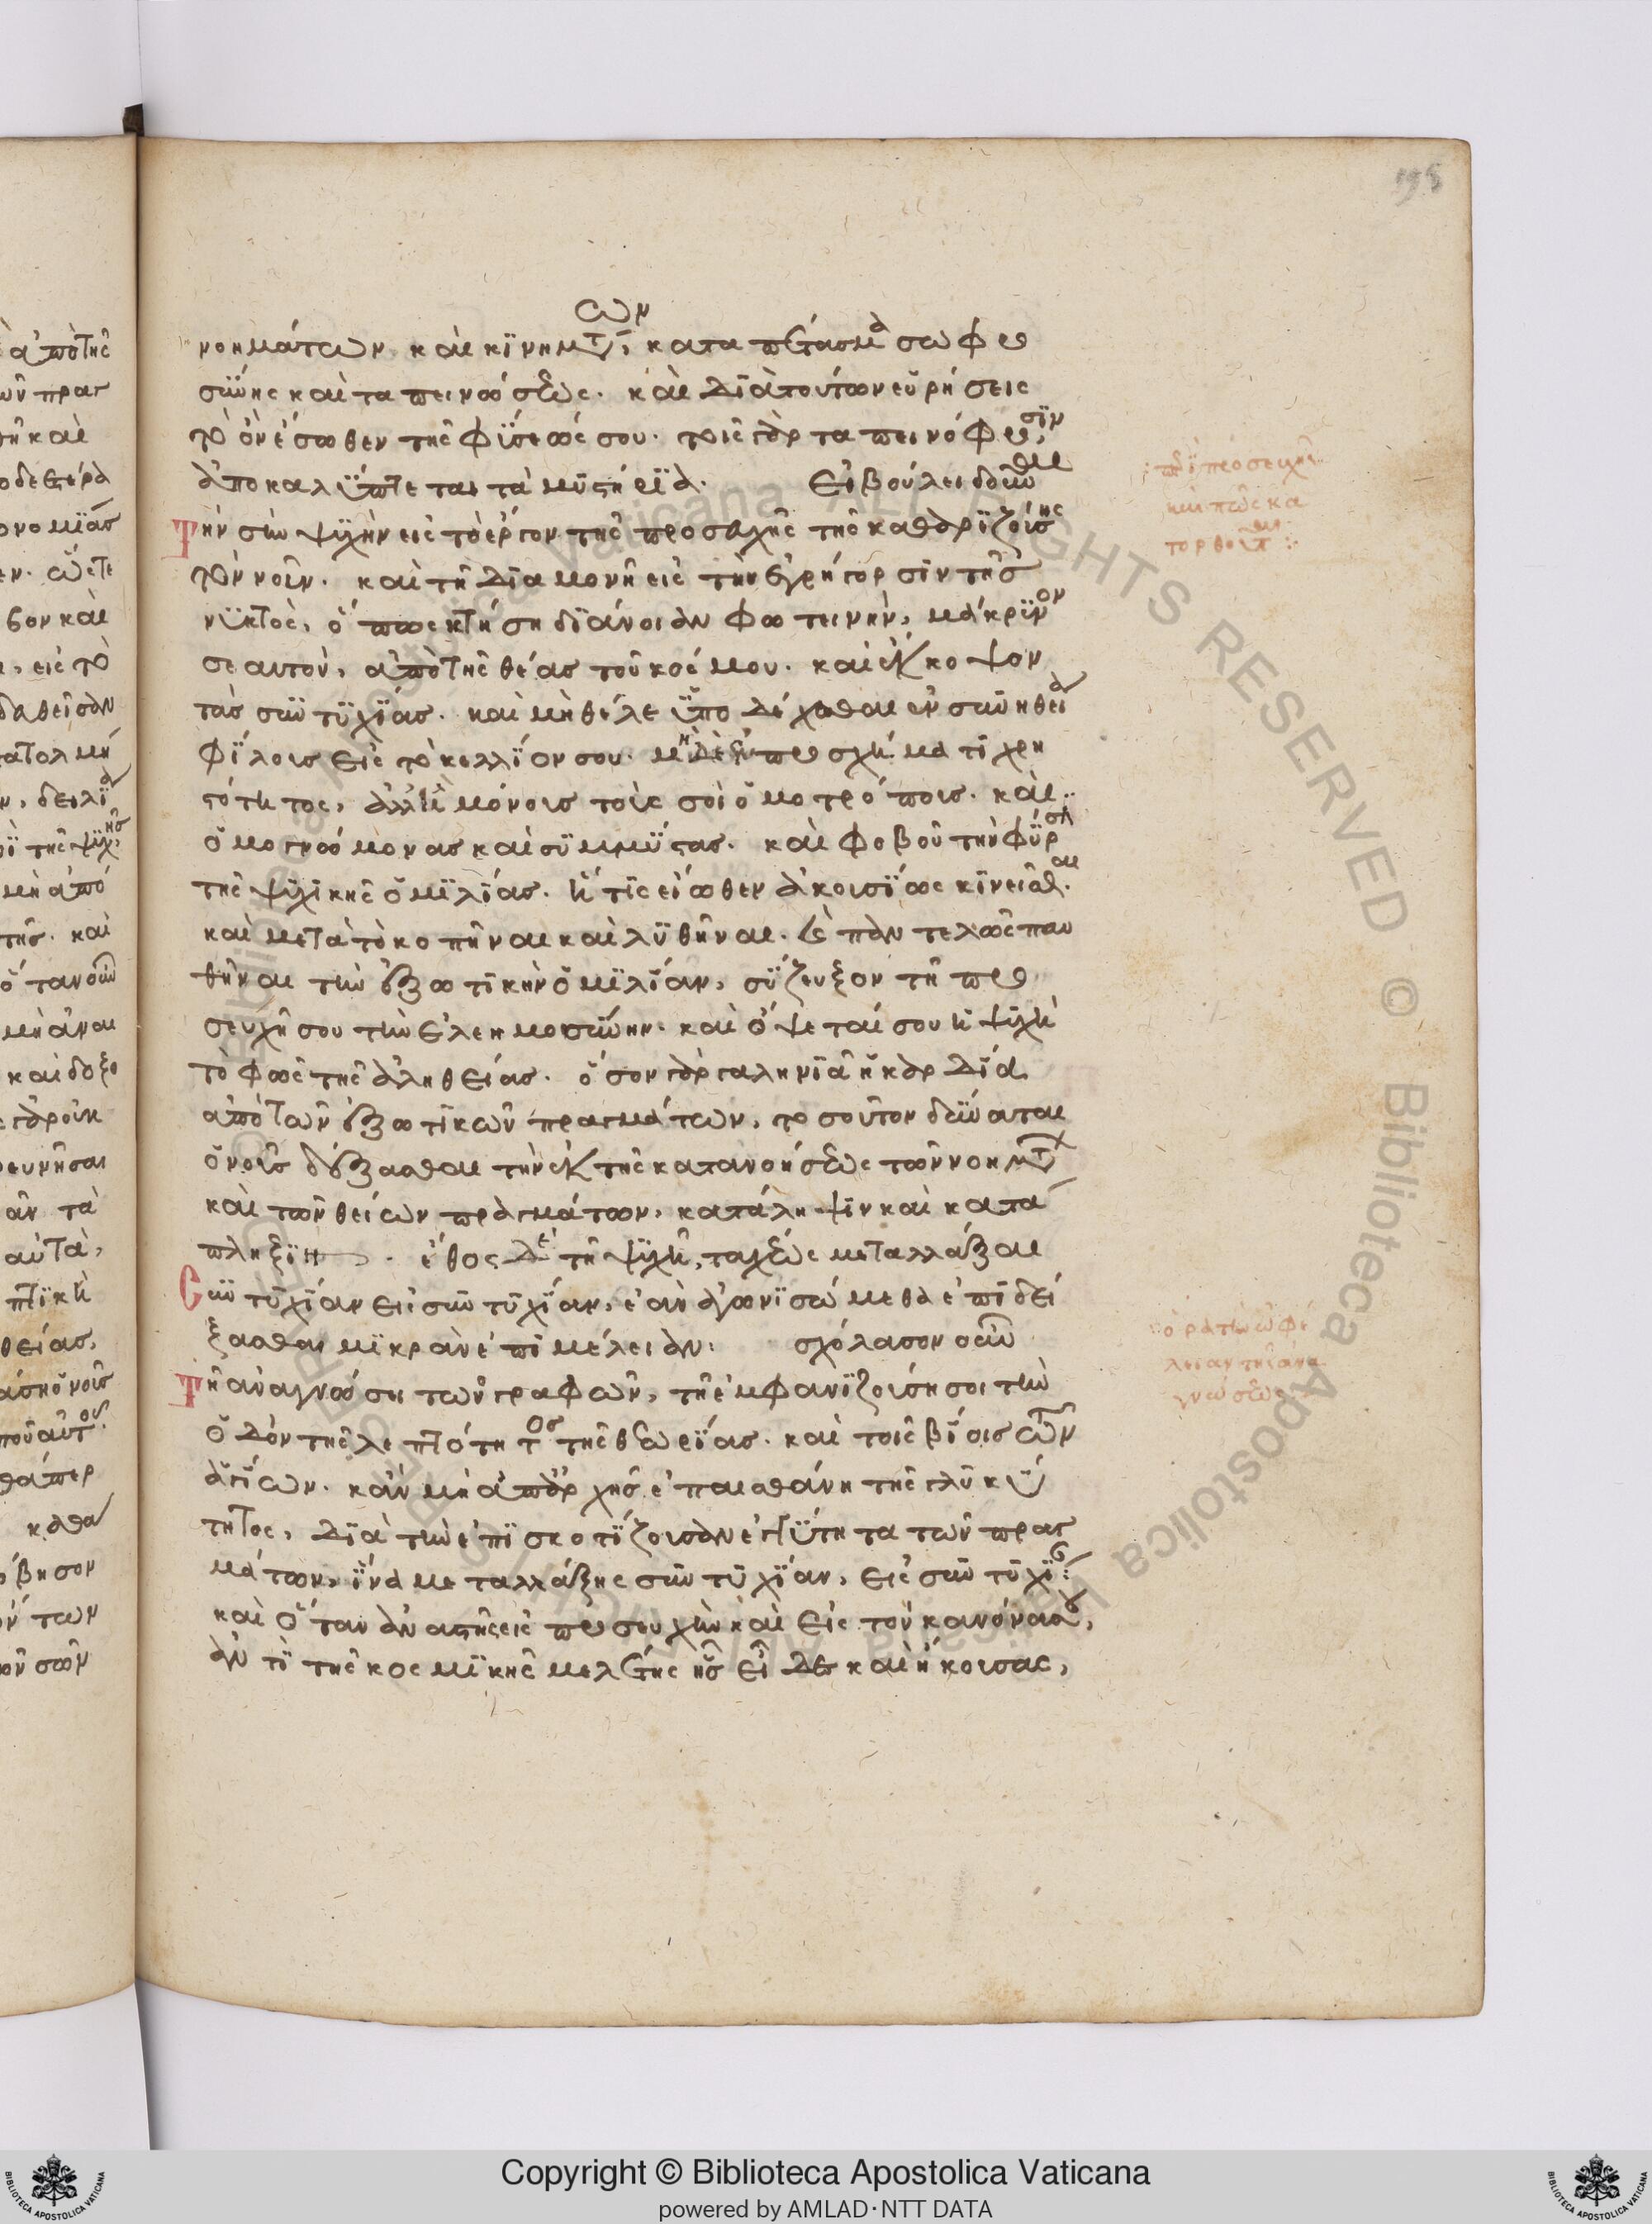 νοημάτων καὶ κϊνημάτων, καταπέτασμα σωφρο
σύνης καὶ ταπεινώσεως. καὶ διὰ τούτων εὑρήσεις
τὸ ὂν ἔσωθεν τῆς φύσεώς σου. τοῖς γὰρ ταπεινόφροσιν,
ἀποκαλύπτεται τὰ μυστήρια. Εἰ βούλει δοῦναι
τὴν σὴν ψυχὴν εἰς τὸ ἔργον τῆς προσευχῆς τῆς καθαριζούσης
τὸν νοῦν. καὶ τῇ διαμονῇ εἰς τὴν ἐγρήγορσιν τῆς
νυκτὸς, ὅπως κτήσῃ διάνοιαν φωτεινήν, μάκρυνον
σεαυτὸν, ἀπὸ τῆς θέας τοῦ κόσμου. καὶ ἔκκοψον
τὰς συντυχίας. καὶ μὴ θέλε ὑποδέχεσθαι ἐν συνηθείᾳ
φίλοις εἰς τὸ κελλίον σου. μηδὲ ἐν προσχήματι χρη
στότητος, ἀλλ' ἢ μόνοις τοῖς σοὶ ὁμοτρόποις. καὶ
ὁμογνώμονας καὶ συμμύστας. καὶ φοβοῦ τὴν φύρσιν
τῆς ψυχικῆς ὁμιλίας. ἥτις εἴωθεν ἀκουσίως κινεῖσθαι.
καὶ μετὰ τὸ κοπῆναι καὶ λυθῆναι. καὶ παντελῶς παυ
θῆναι τὴν ἐξωτικὴν ὁμιλίαν, σύζευξον τῇ προ
σευχῇ σου τὴν ἐλεημοσύνην. καὶ ὄψεταί σου ἡ ψυχὴ
τὸ φῶς τῆς ἀληθείας. ὅσον γὰρ γαληνιᾷ ἡ καρδία
ἀπὸ τῶν ἐξωτικῶν πραγμάτων, τοσοῦτον δύναται
ὁ νοῦς δέξασθαι τὴν ἐκ τῆς κατανοήσεως τῶν νοημάτων
καὶ τῶν θείων πραγμάτων, κατάληψιν καὶ κατά
πληξιν. ἔθος δὲ τῇ ψυχῇ, ταχέως μεταλλάξαι
συντυχίαν εἰς συντυχίαν, ἐὰν ἀγωνισώμεθα ἐπιδεί
ξασθαι μικρὰν ἐπιμέλειαν: σχόλασον οὖν
τῇ ἀναγνώσει τῶν γραφῶν, τῇ ἐμφανιζούσῃ σοι τὴν
ὁδὸν τῆς λεπτότητος τῆς θεωρίας. καὶ τοῖς βίοις τῶν
ἁγίων. κἂν μὴ ἀπαρχῆς ἐπαισθάνῃ τῆς γλυκύ
τητος, διὰ τὴν ἐπισκοτίζουσαν ἐγγύτητα τῶν πραγ
μάτων, ἵνα μεταλλάξῃς συντυχίαν, εἰς συντυχίαν:
καὶ ὅταν ἀναστῇς εἰς προσευχὴν καὶ εἰς τὸν κανόνα σου,
ἀντὶ τῆς κοσμικῆς μελέτης ἧς εἶδες καὶ ἤκουσας,
περὶ προσευχῆς
καὶ πῶς κα
τορθοῦται
ὅρα τὴν ὠφέ
λειαν τῆς ἀνα
γνώσεως
Copyright © Biblioteca Apostolica Vaticana
powered by AMLAD·NTT DATA